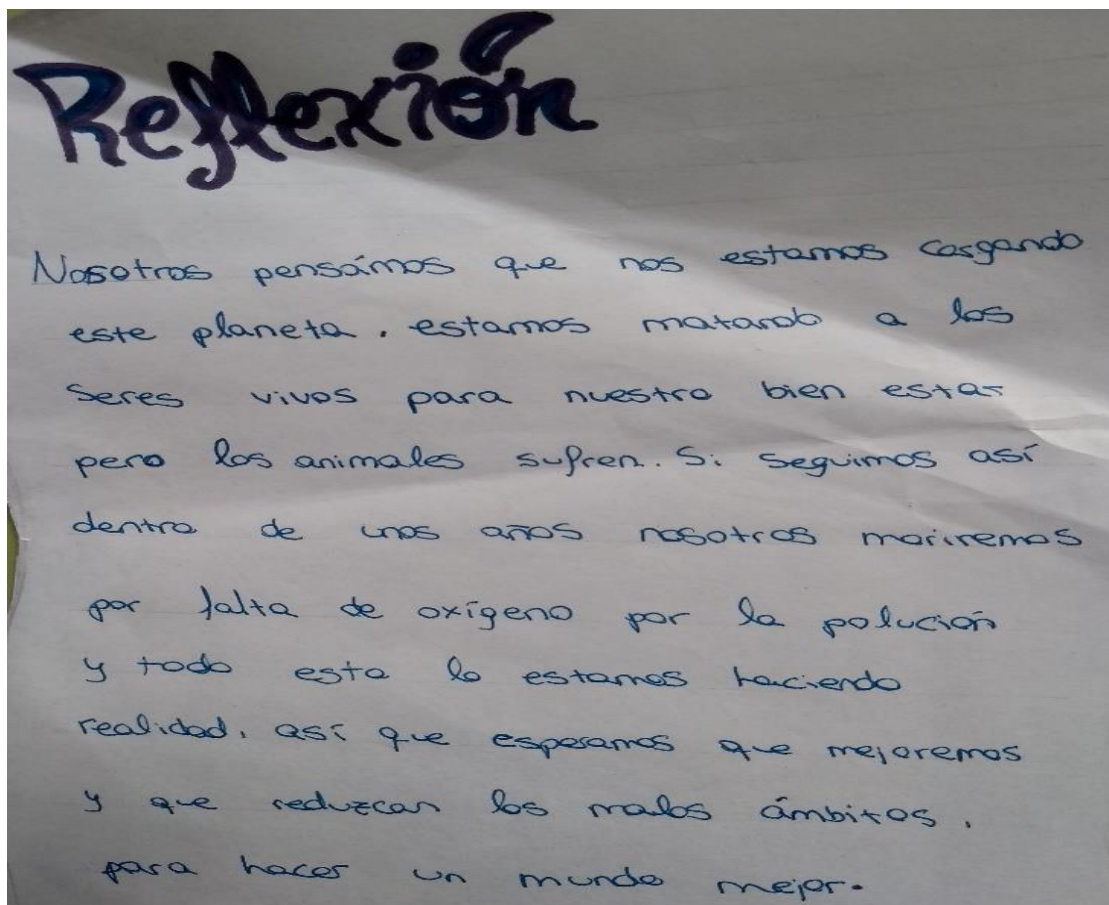 Reflexión
Nosotros pensámos que nos estamos cargando
este planeta. estamos matando a los
seres vivos para nuestro bien estar
pero los animales sufren. Si seguimos así
dentro de unos años nosotros moriremos
por falta de oxígeno por la polución
y todo esto lo estamos haciendo
realidad, así que esperamos que mejoremos
y que reduzcan los malos ámbitos,
para hacer un mundo mejor.